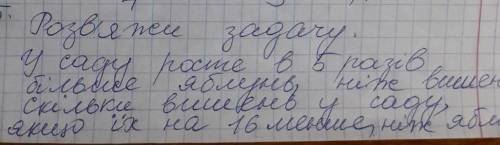 Розв'яжи задачу.
У саду росте в 5 разів
більше яблунь, ніж вишень
скільки вишень у саду,
якщо їх на 16 менше, ніж ябл